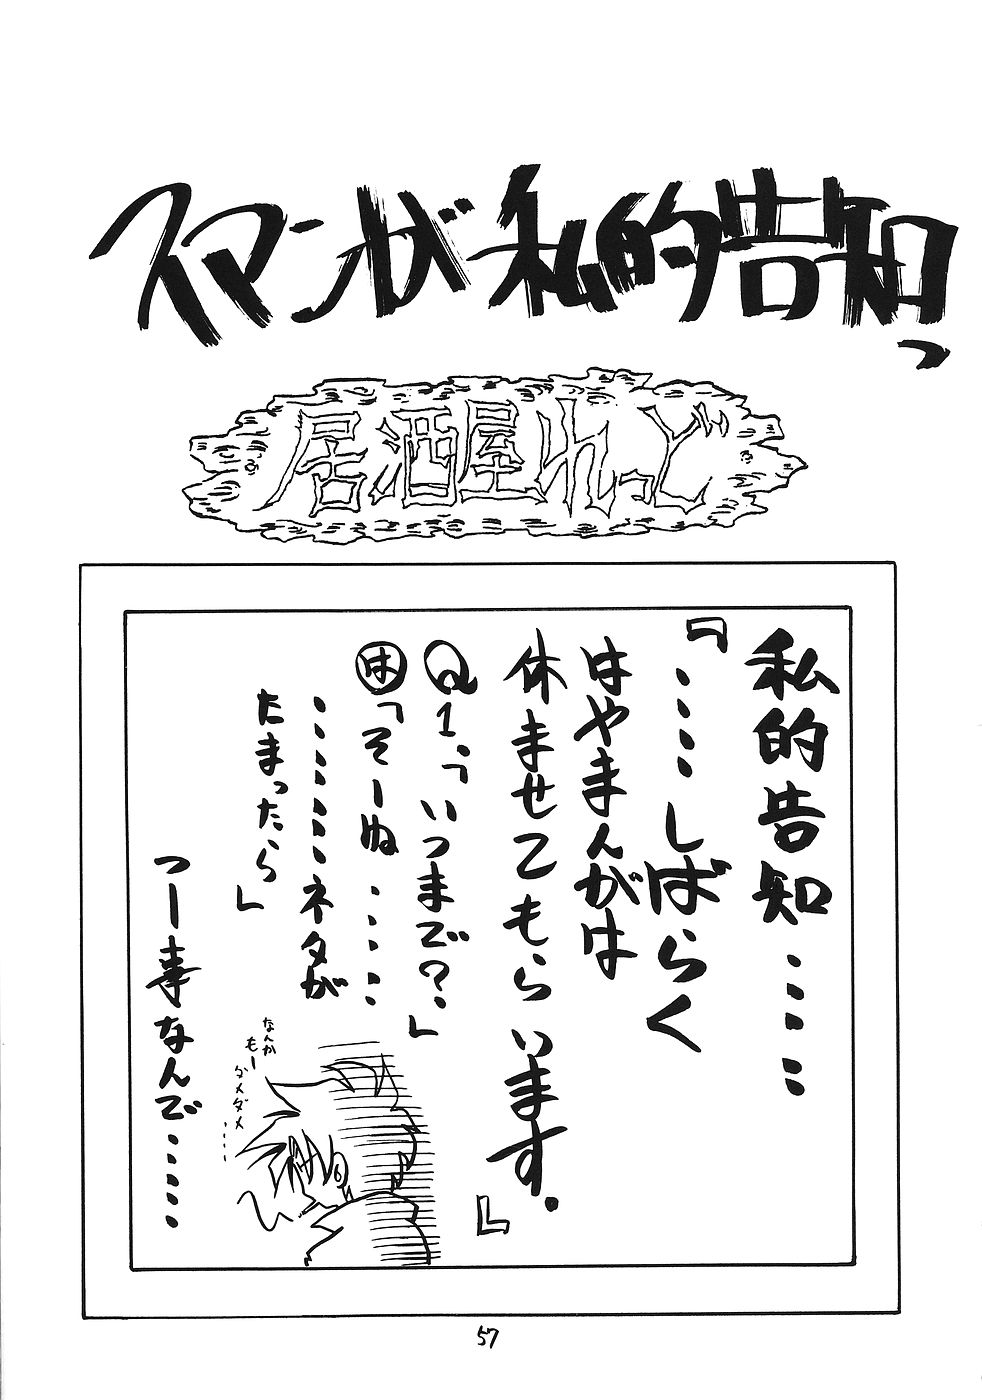 スマンが私的告知っ
居酒屋れっど
私的告知……
『……しばらく
はやまんがは
休ませてもらいます。』
Q1.「いつまで?」
は「そーぬ……
………ネタが
たまったら」
なんか
もー
ダメダメ……
つー事なんで……
57